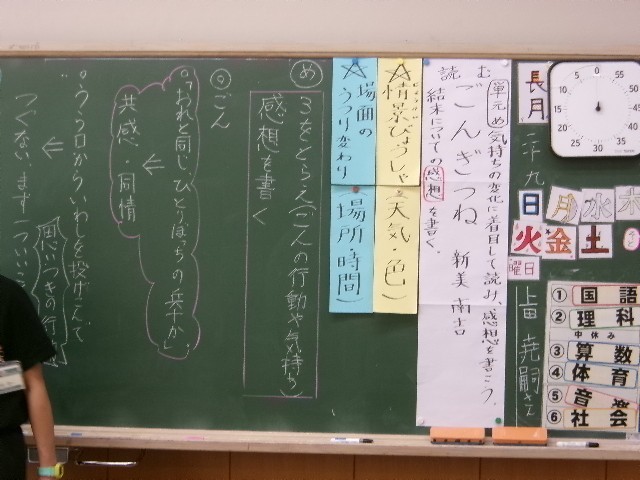 長月
二十九
日
月
水
木
火
金
土
曜日
① 国語
② 理科
中休み
③ 算数
④ 体育
⑤ 音楽
⑥ 社会
単元め 気持ちの変化に着目して読み、感想を書こう。
ごんぎつね 新美南吉
読む
結末についての感想を書く。
☆情景びょうしゃ(天気・色)
☆場面のうつり変わり(場所・時間)
め
3をとらえ(ごんの行動や気持ち)
感想を書く
ごん
「おれと同じ、ひとりぼっちの兵十か」
←
共感・同情
いわしを投げこんで
←
つぐない、まず一つ
思いつきの行
0
5
10
15
20
25
30
35
40
45
50
55